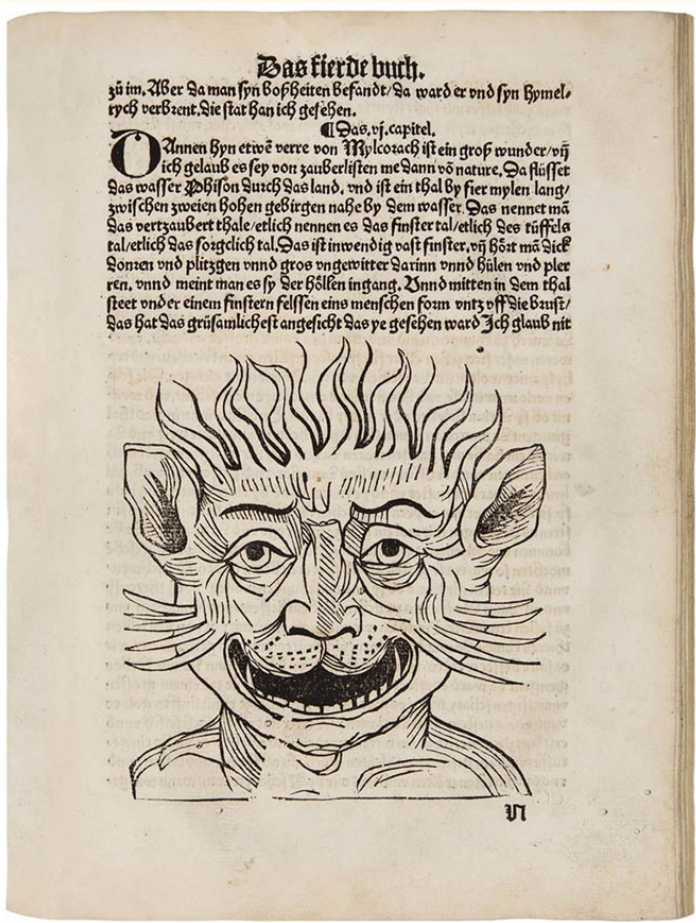 Das fierde buch.
zů im. Aber da man syn boßheiten befandt/da ward er vnd syn hymel⸗
rych verbrent. die stat han ich gesehen.
¶ Das. vj. capitel.
DAnnen hyn etwē verre von Mylcorach ist ein groß wunder/vñ
ich gelaub es sey von zauberlisten me dann vō nature. Da flüsset
das wasser Phison durch das land. vnd ist ein thal by fier mylen lang/
zwischen zweien hohen gebirgen nahe by dem wasser. Das nennet mā
das vertzaubert thale/etlich nennen es das finster tal/etlich des tüffels
tal/etlich das sorgclich tal. Das ist inwendig vast finster. vñ hört mā dick
donren vnd plitzgen vnnd gros vngewitter darinn vnnd hülen vnd pler
ren. vnnd meint man es sy der höllen ingang. Vnnd mitten in dem thal
steet vnder einem finstern felssen eins menschen form vntz vff die brust/
das hat das grüsamlichest angesicht das ye gesehen ward Ich glaub nit
N